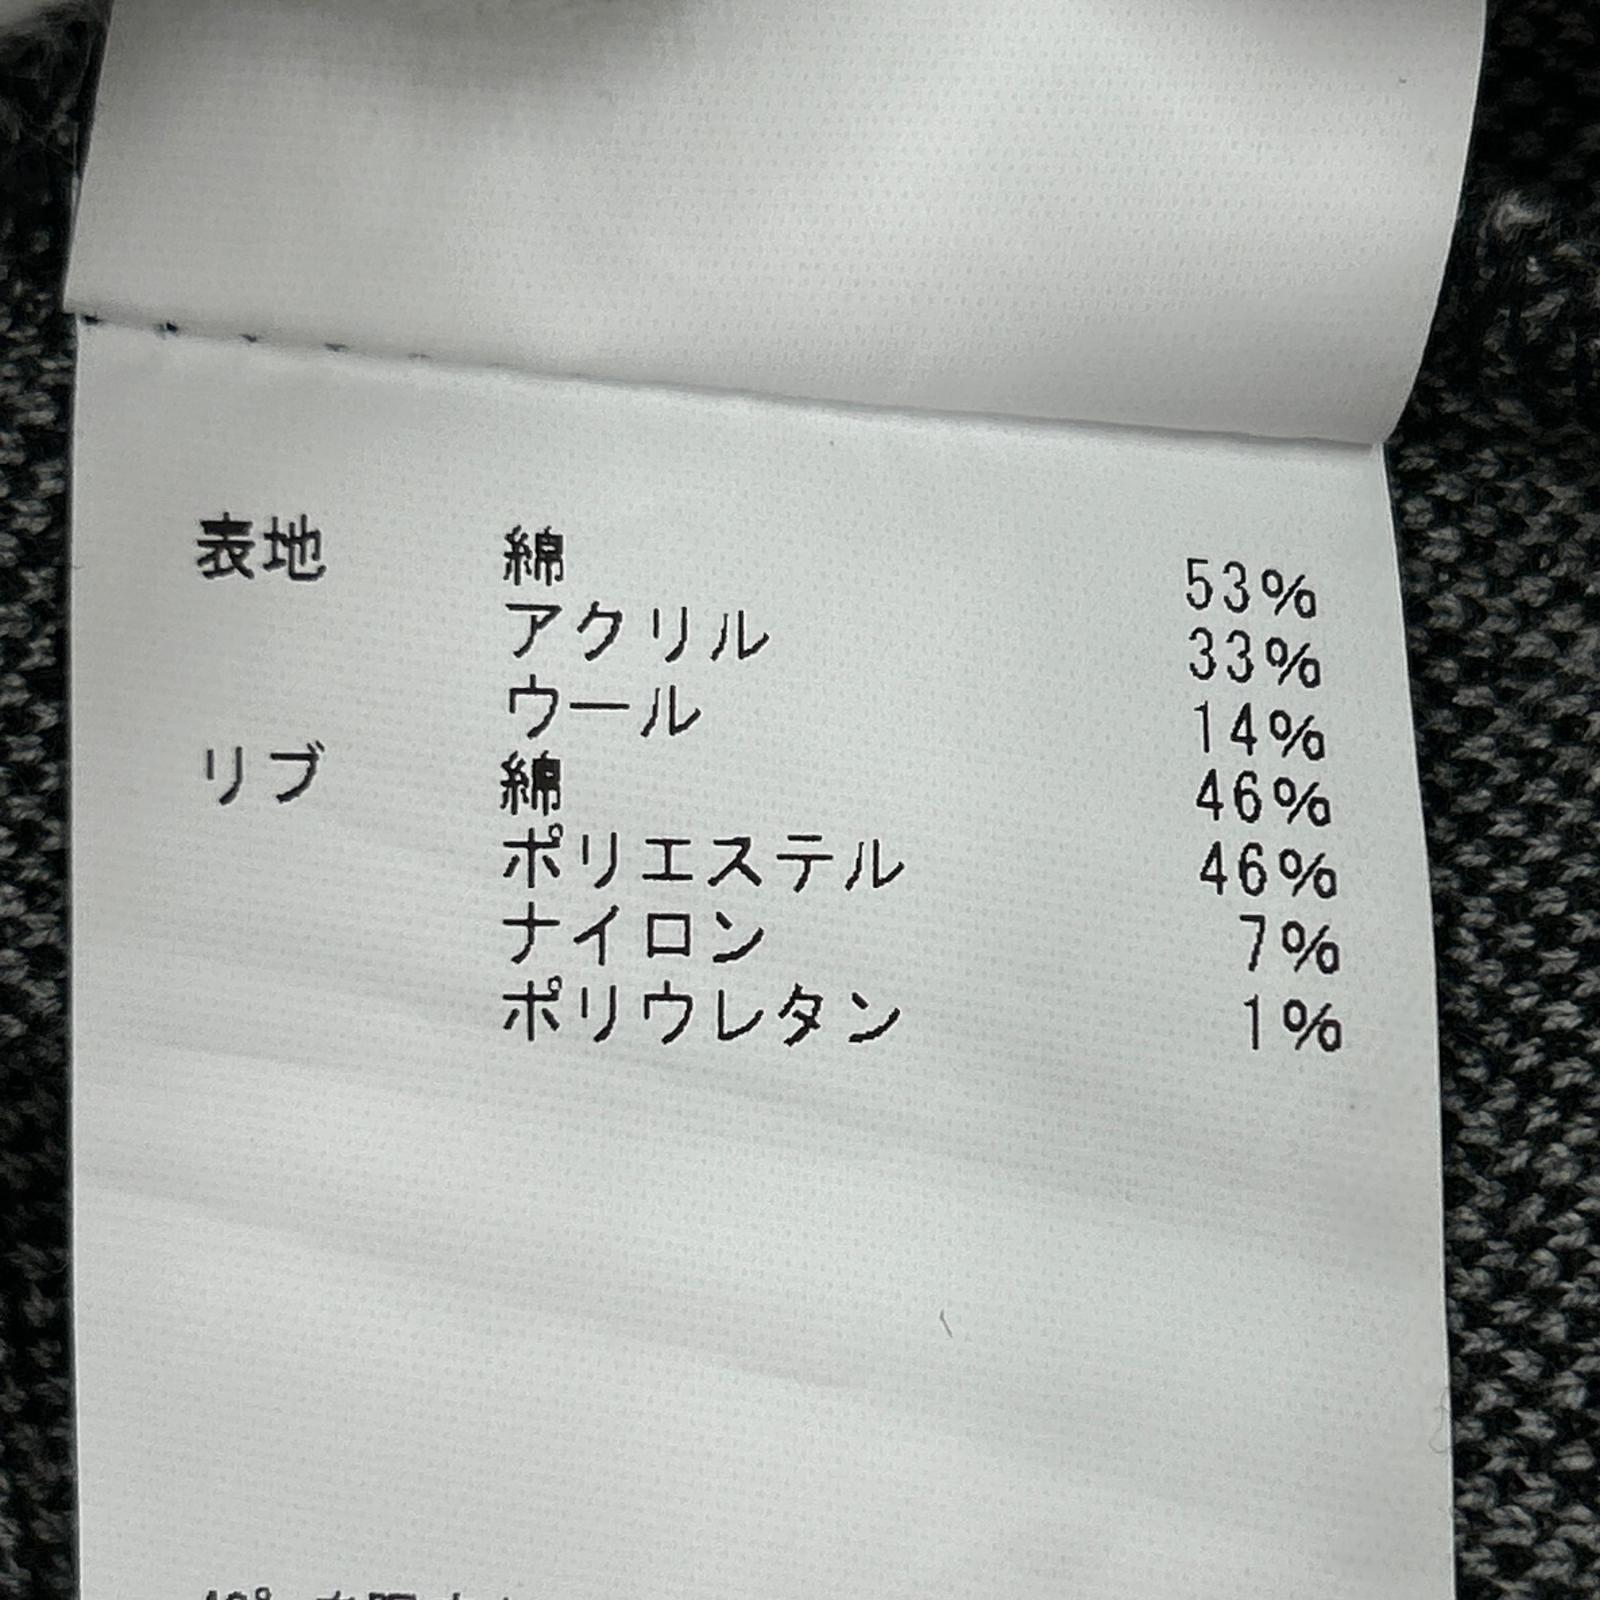 表地 綿 53%
アクリル 33%
ウール 14%
リブ 綿 46%
ポリエステル 46%
ナイロン 7%
ポリウレタン 1%